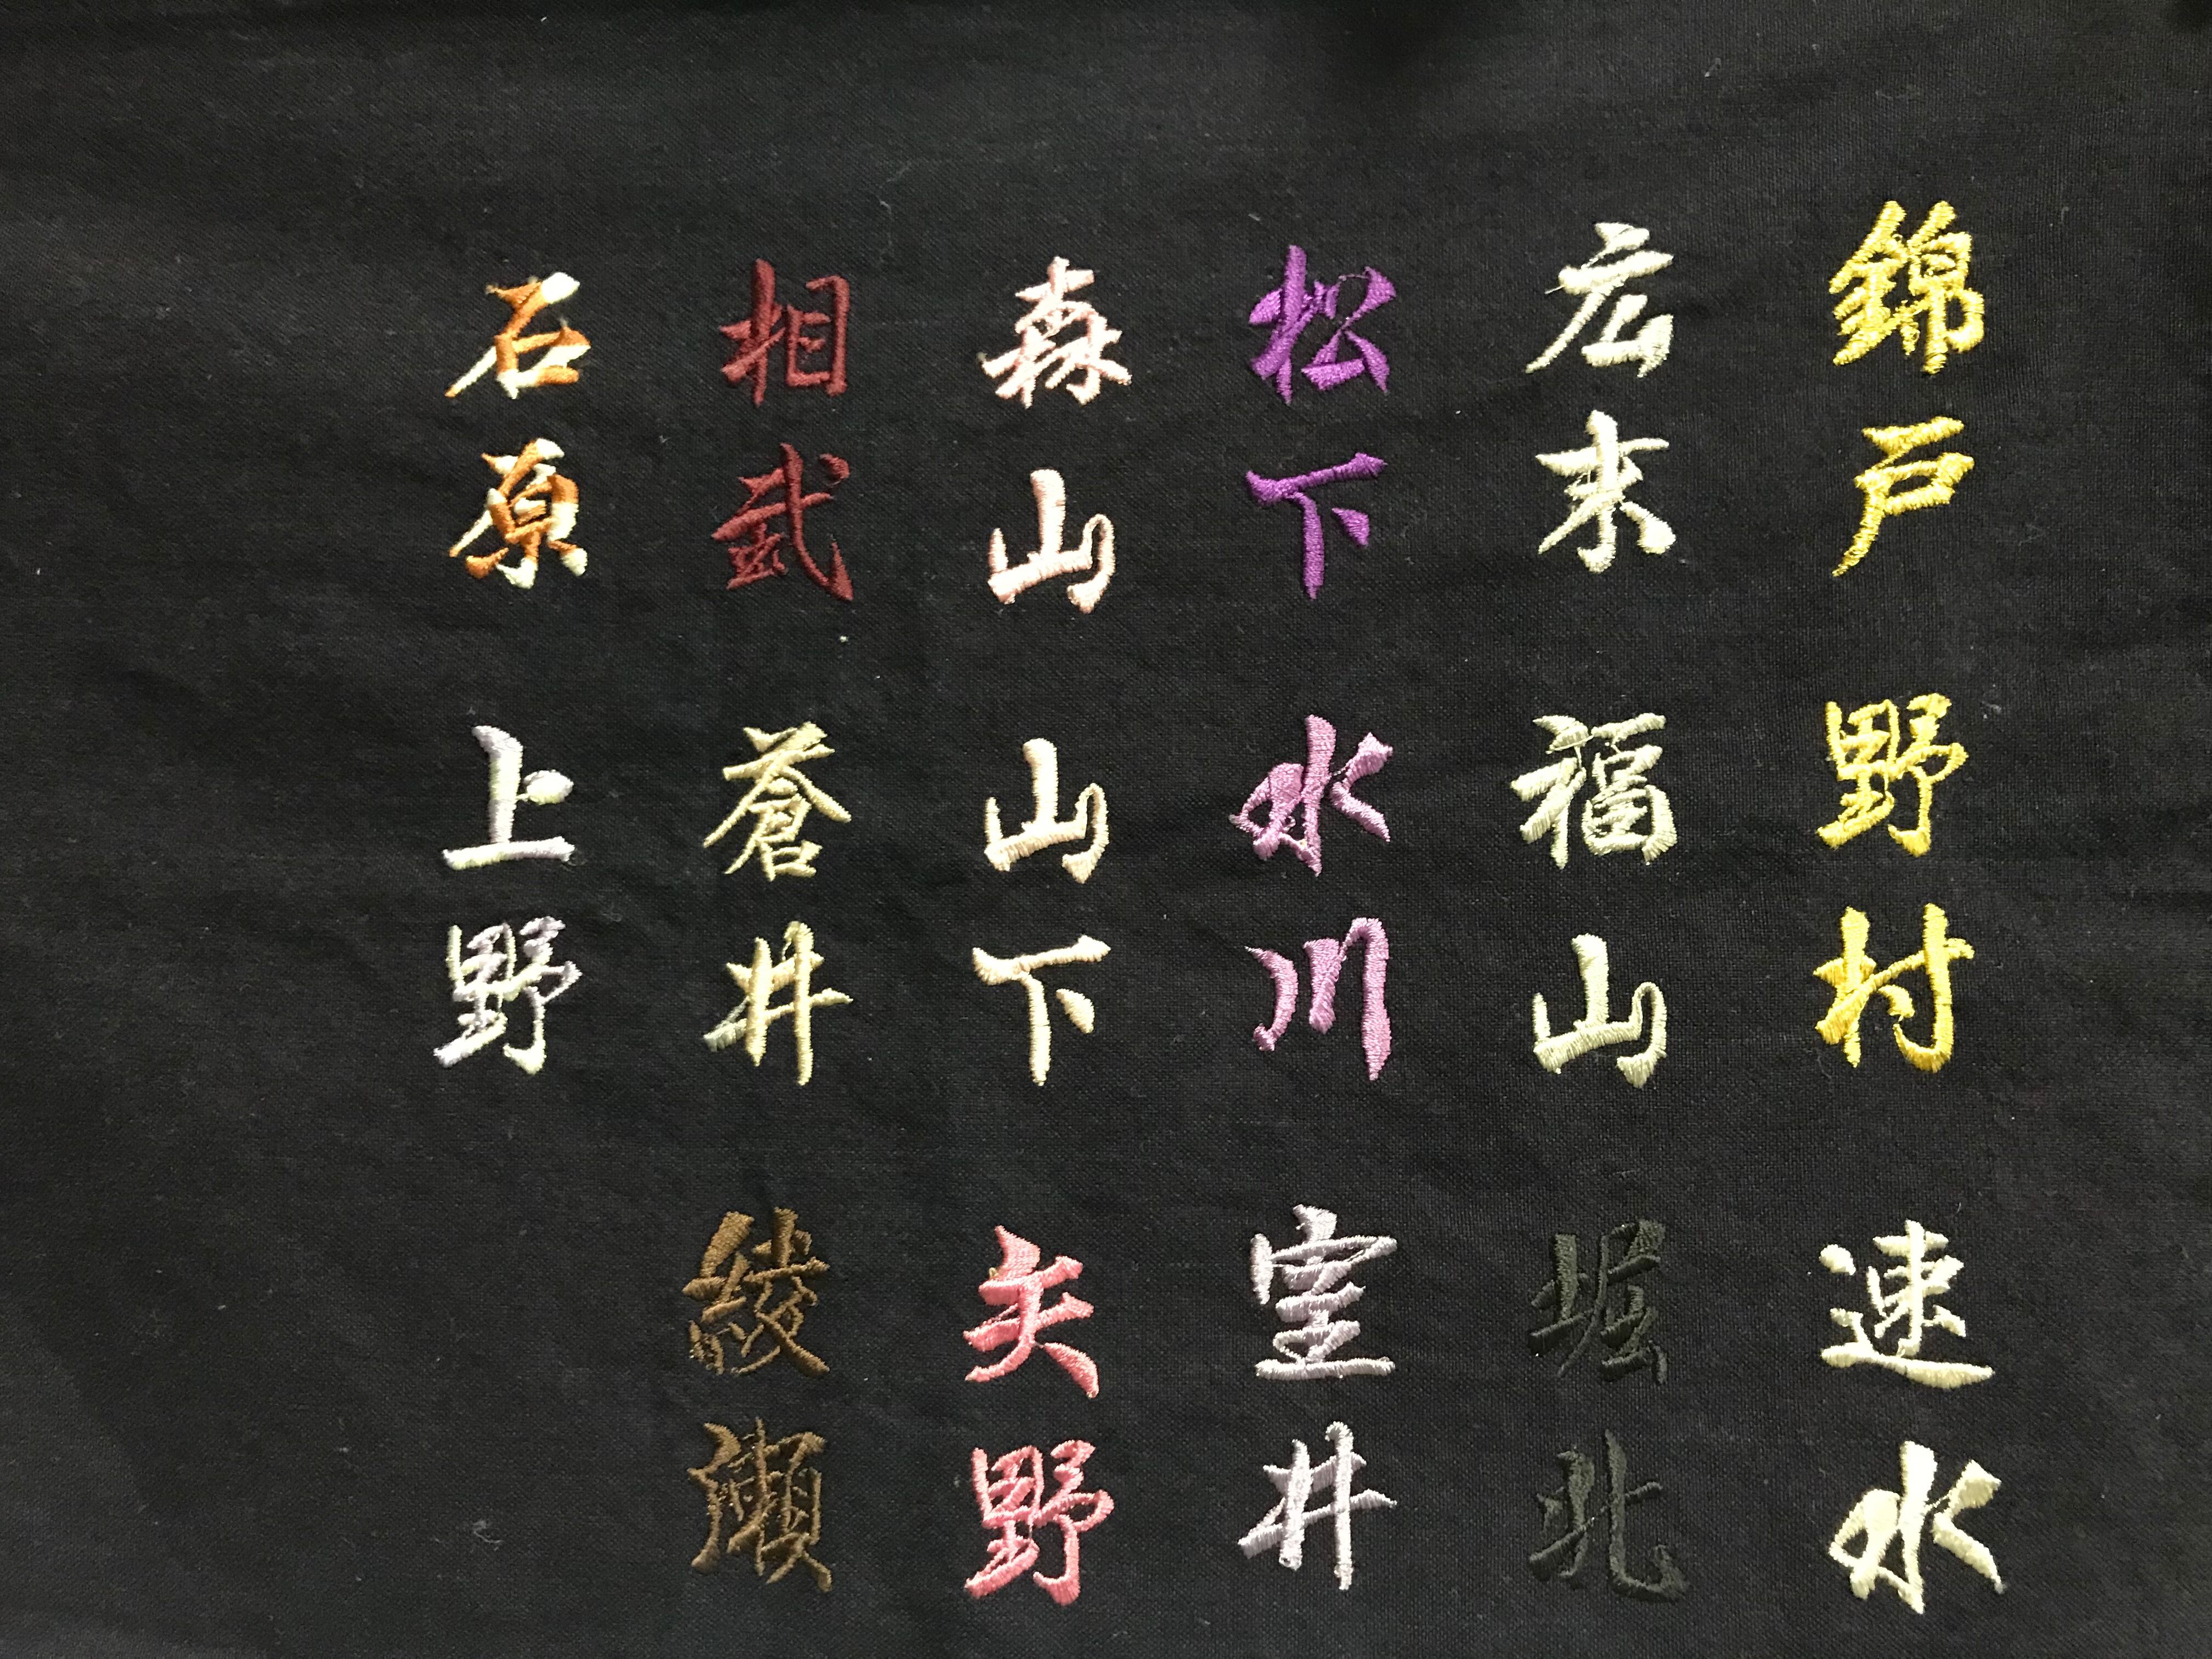 錦戸
広末
松下
森山
相武
石原
野村
福山
水川
山下
蒼井
上野
速水
堀北
室井
矢野
綾瀬